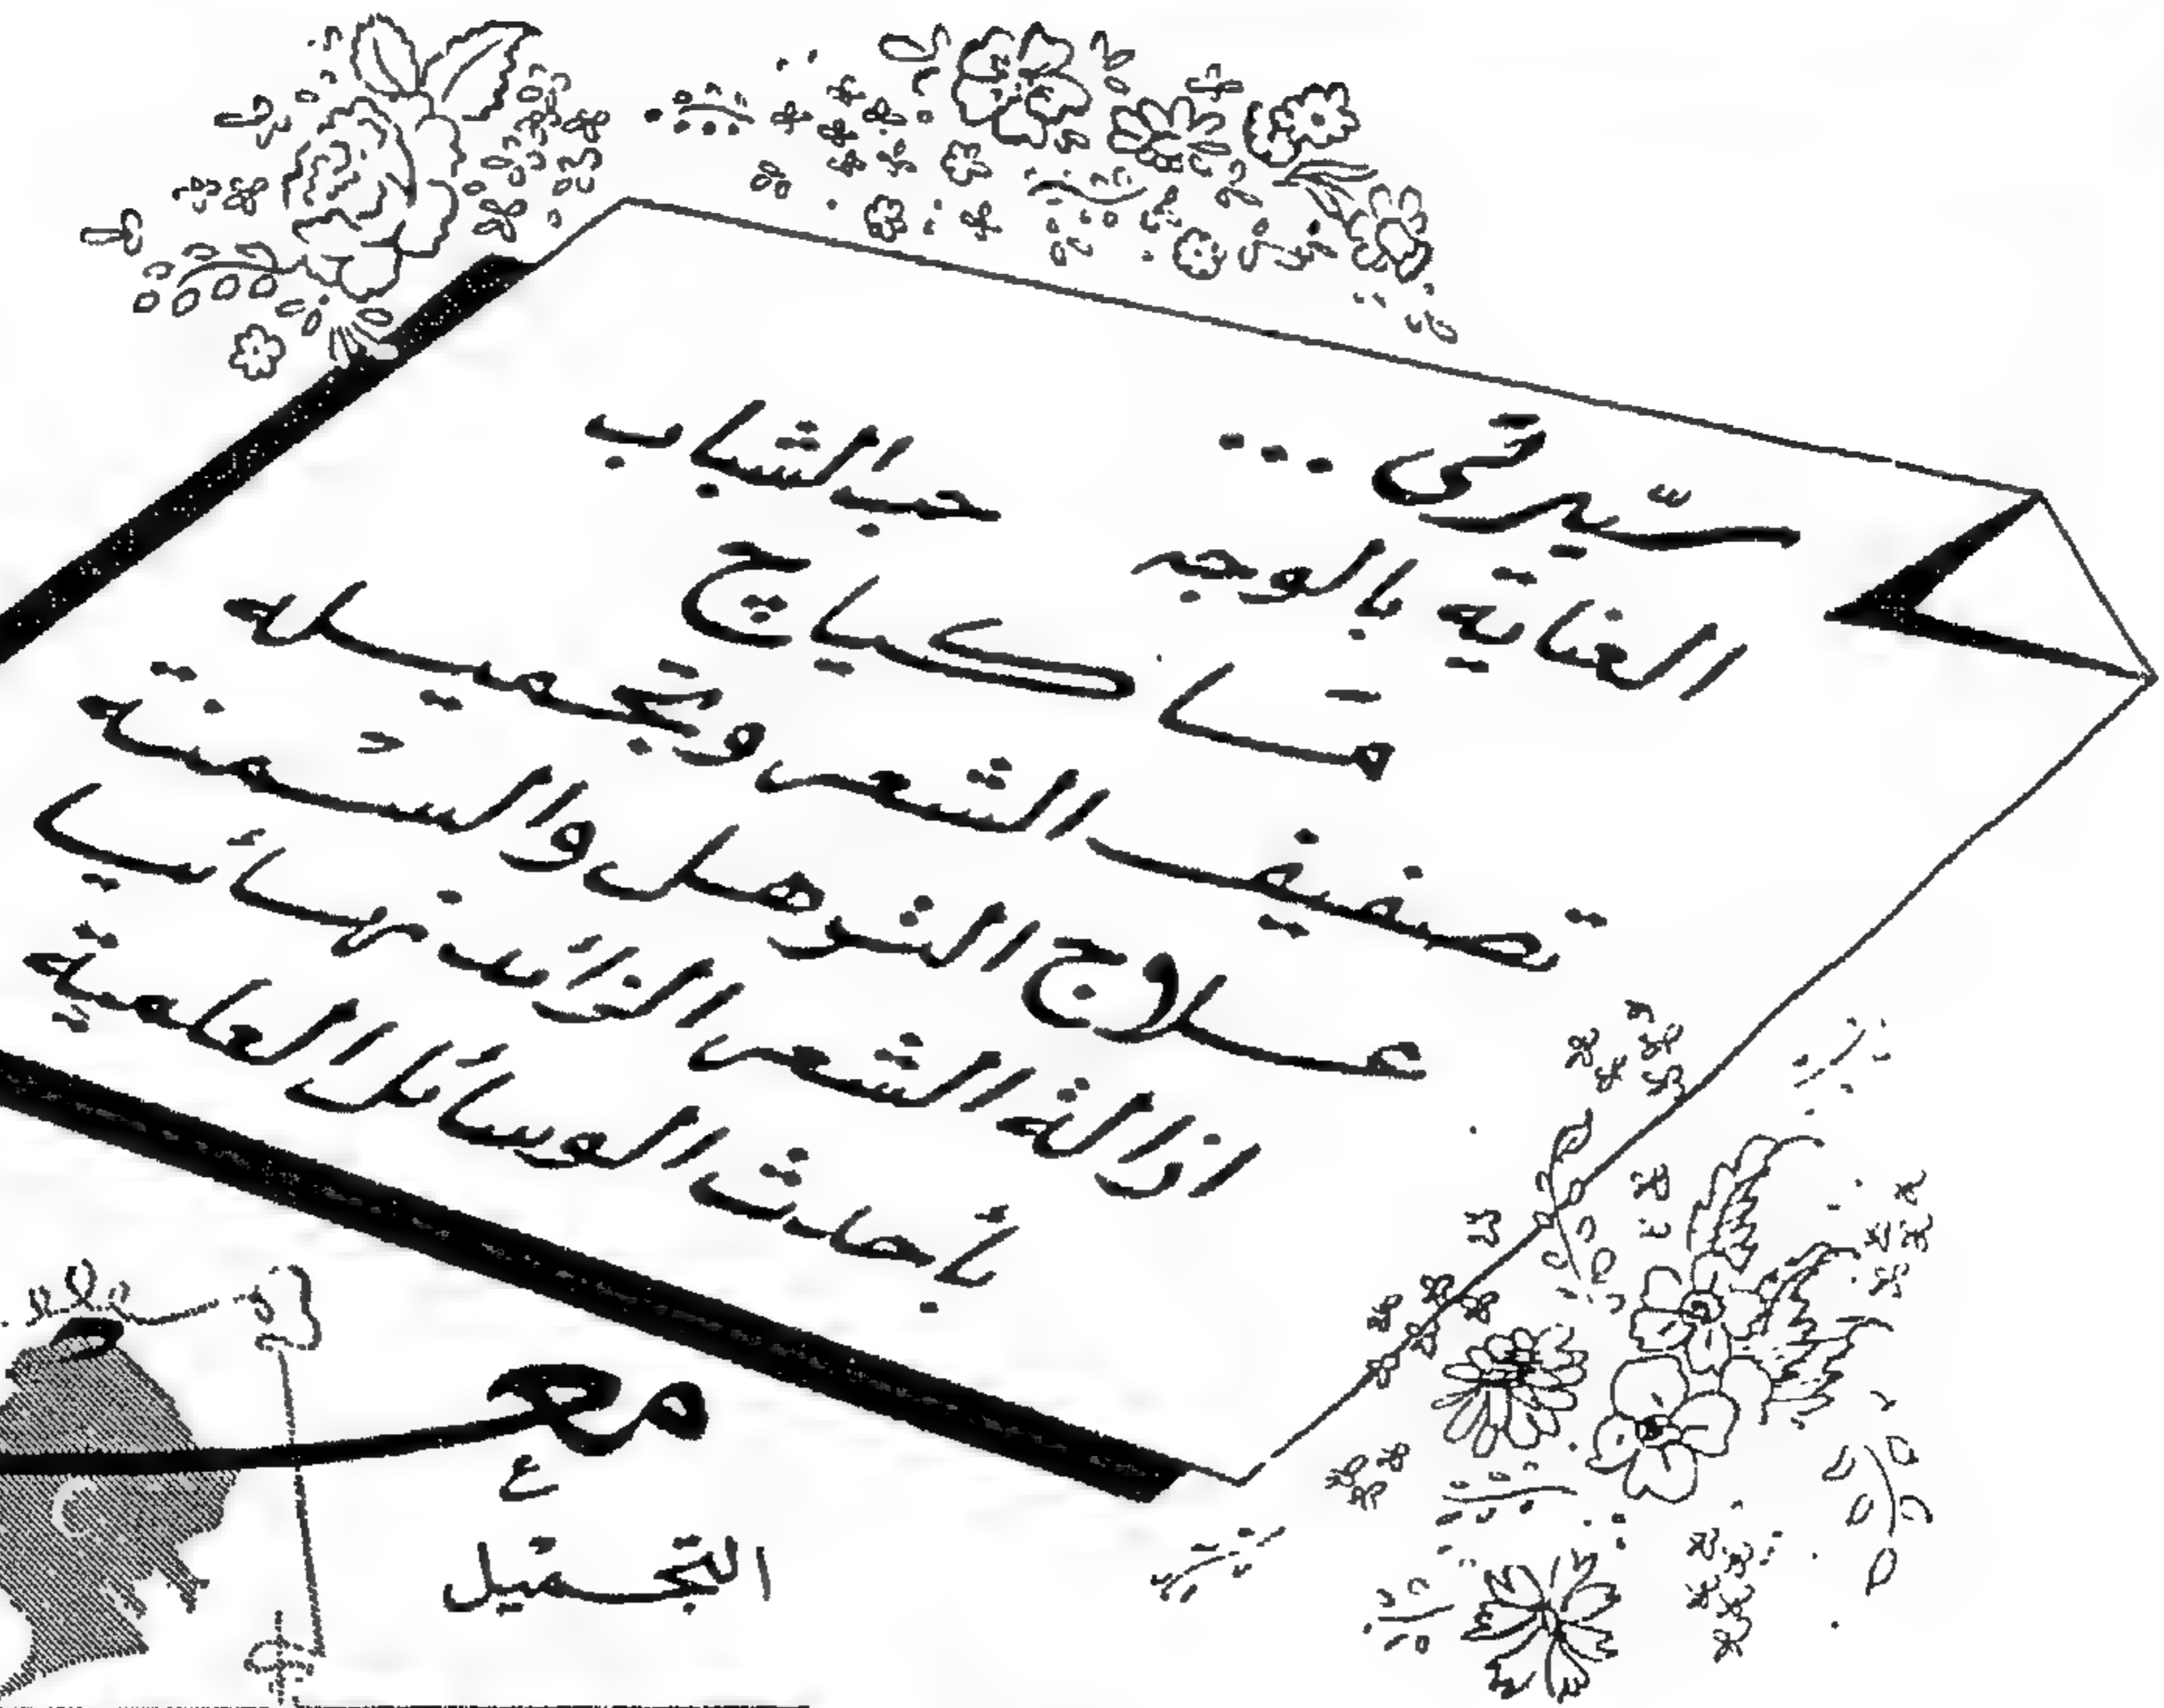 سيدتي ...
العناية بالوجه
حب الشباب
ماكياج
تصفيف الشعر وتجميله
علاج الترهل والسمنة
ازالة الشعر الزائد نهائيا
بأحدث الوسائل العلمية
مع
التجميل